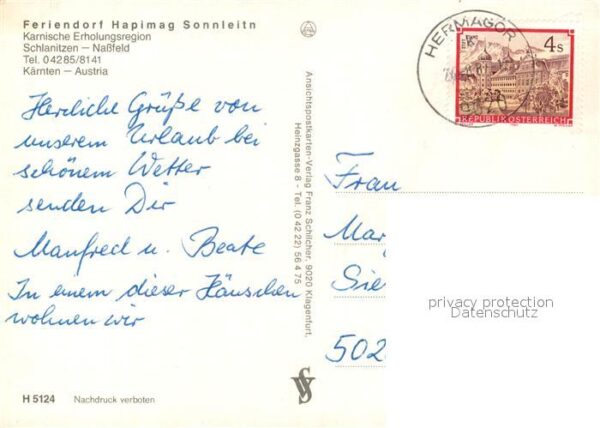 Feriendorf Hapimag Sonnleitn
Karnische Erholungsregion
Schlanitzen – Naßfeld
Tel. 04285/8141
Kärnten – Austria
Herzliche Grüße von
unserem Urlaub bei
schönem Wetter
senden Dir
Manfred u. Beate
In einem dieser Häuschen
wohnen wir
H 5124 Nachdruck verboten
Ansichtspostkarten-Verlag Franz Schilcher, 9020 Klagenfurt,
Heinzgasse 8 - Tel. (0 42 22) 56 4 75
HERMAGOR
4 S
REPUBLIK ÖSTERREICH
Frau
Mar
Sie
502
privacy protection
Datenschutz